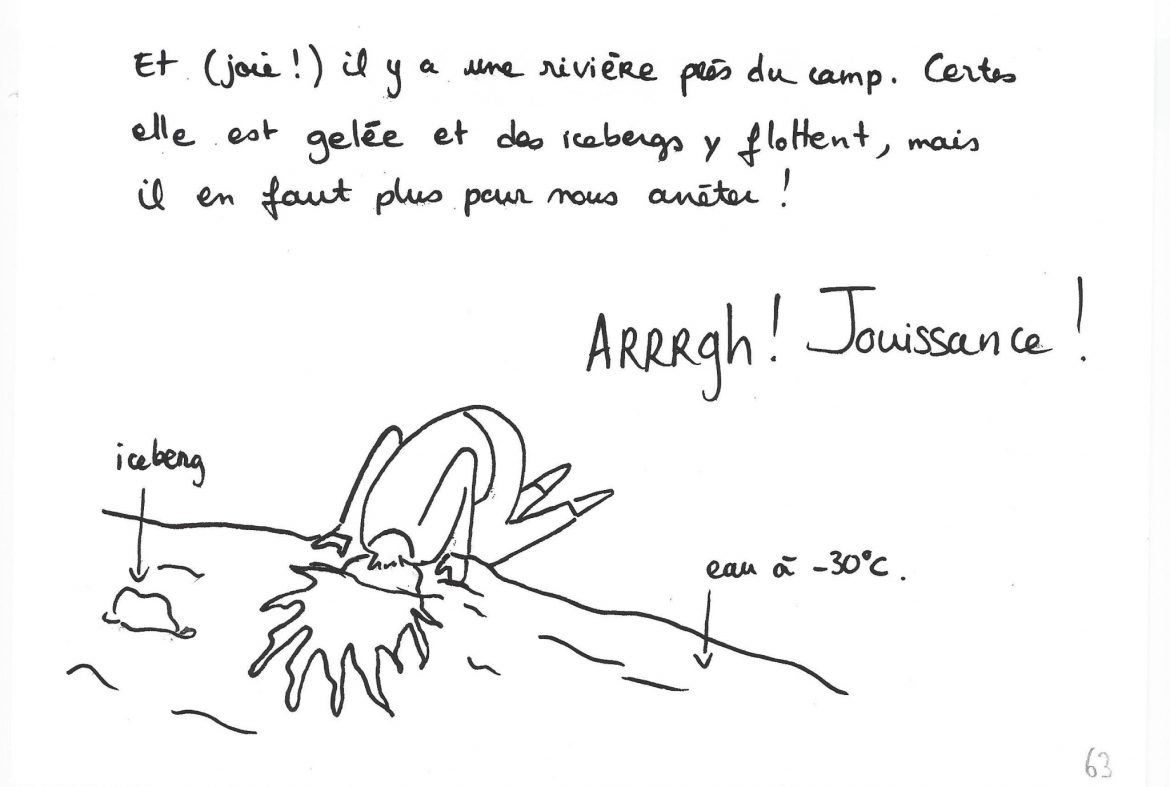 Et (joie !) il y a une rivière près du camp. Certes
elle est gelée et des icebergs y flottent, mais
il en faut plus pour nous arrêter !
ARRRgh ! Jouissance !
iceberg
eau à -30°C.
63